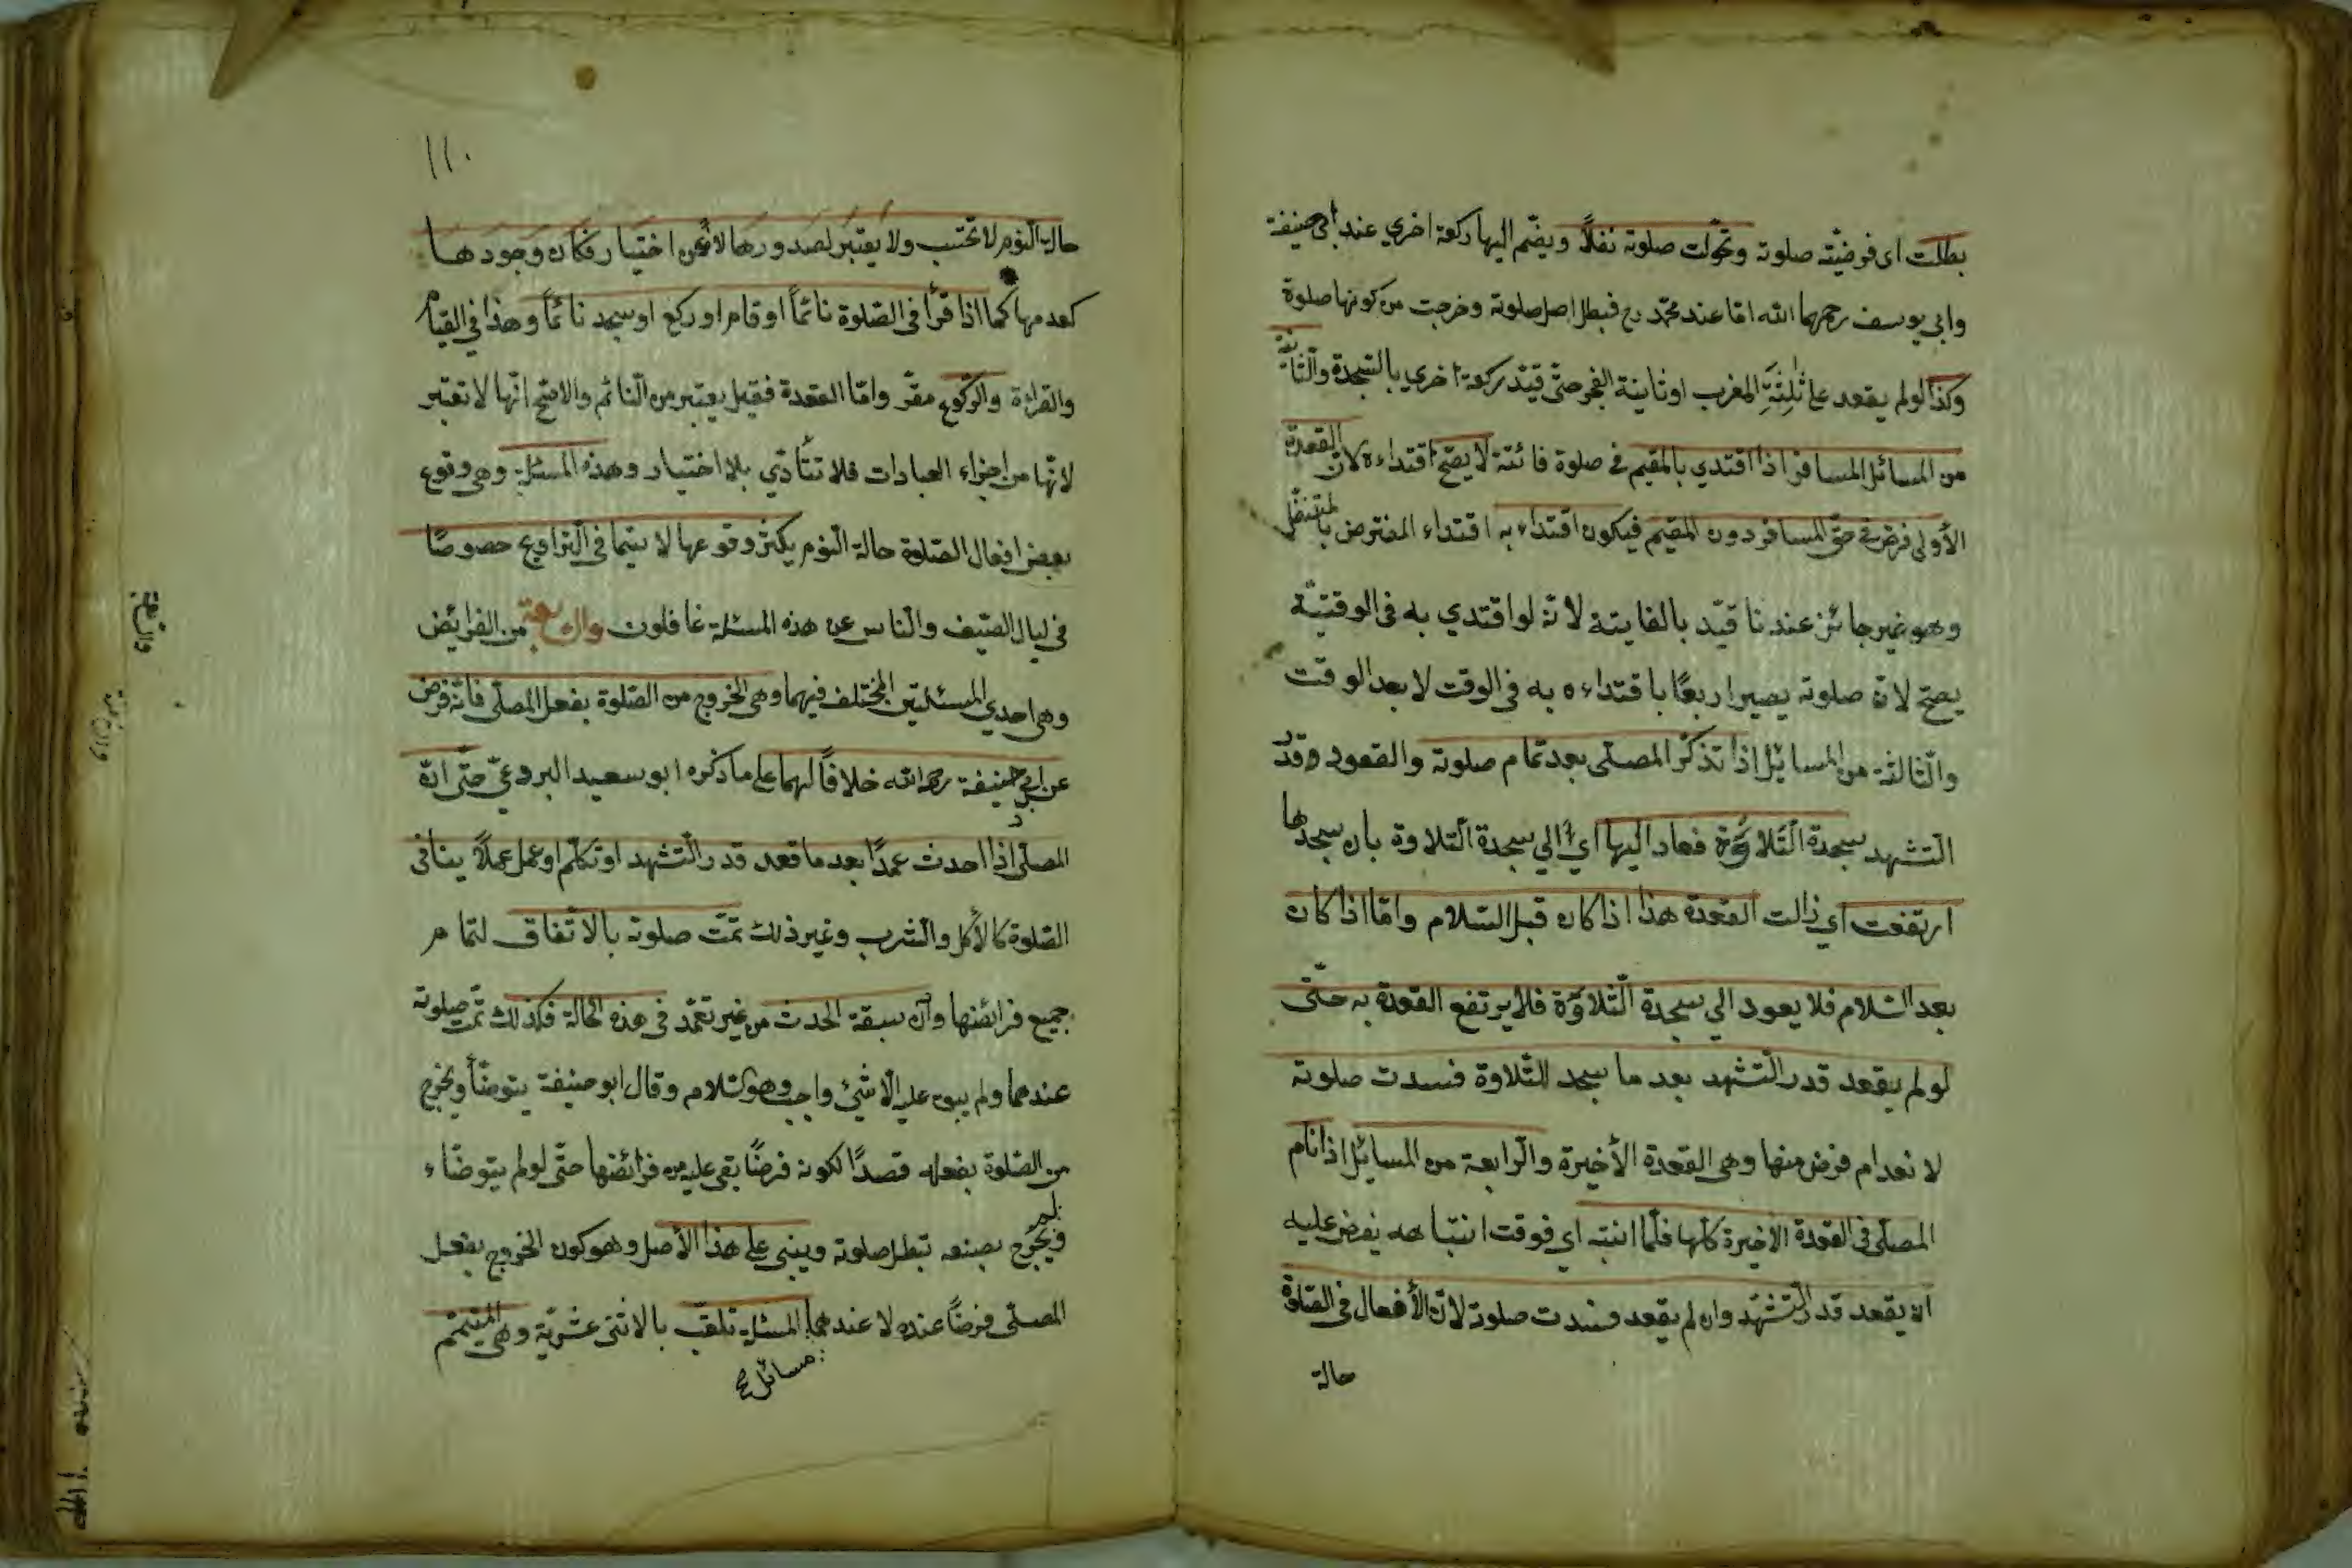 بطلت اى فرضيّته صلوته وتحوّلت صلوته نفلاً ويضّم اليها ركعة اخري عند ابى حنيفة
وابى يوسف رحمهما الله امّا عند محمّد رح فبطل اصل صلوته وخرجت من كونها صلوة
وكذا لو لم يقعد على ثلثة المغرب او ثانية الفجر حتّى قيّد ركعة اخري بالسّجدة والثّانية
من المسائل المسافر اذا اقتدي بالمقيم فى صلوة فائتة لا يصّح اقتداءه لانّ القعدة
الأولى فرض فى حقّ المسافر دون المقيم فيكون اقتداءه به اقتداء المفترض بالمتنفّل
وهو غير جائز عندنا قيّد بالفايتة لانّه لو اقتدي به فى الوقتيّة
يصّح لانّ صلوته يصير اربعًا باقتداءه به فى الوقت لا بعد الوقت
والثّالثة من المسائل اذا تذكّر المصلّى بعد تمام صلوته والقعود قدر
التّشهد سجدة التّلاوة فعاد اليها اي الي سجدة التّلاوة بان سجدها
ارتفعت اي زالت القعدة هذا اذا كان قبل السّلام وامّا اذا كان
بعد السّلام فلا يعود الي سجدة التّلاوة فلا يرتفع القعدة به حتّى
لو لم يقعد قدر التّشهد بعد ما سجد للتّلاوة فسدت صلوته
لانعدام فرض منها وهى القعدة الأخيرة والرّابعة من المسائل اذا نام
المصلّى فى القعدة الأخيرة كلّها فلمّا انتبه اي فوقت انتباهه يفرض عليه
ان يقعد قدر التّشهّد وان لم يقعد فسدت صلوته لانّ الأفعال فى الصّلوة
حالة
١١٠
حالة النّوم لا تحتسب ولا يعتبر لصدورها لا عن اختيار فكان وجودها
كعدمها كما اذا قرأ فى الصّلوة نائمًا او قام او ركع او سجد نائمًا وهذا فى القيام
والقراءة والرّكوع مقرّ وامّا القعدة فقيل يعتبر من النّائم والاصّح انّها لا تعتبر
لانّها من اجزاء العبادات فلا تتأدّي بلا اختيار وهذه المسئلة وهى وقوع
بعض افعال الصّلوة حالة النّوم يكثر وقوعها لا سيّما فى التّراويح خصوصًا
فى ليال الصّيف والنّاس عن هذه المسئلة غافلون والرّابعة من الفرائض
وهى احدي المسئلتين المختلف فيهما وهى الخروج من الصّلوة بفعل المصلّى فانّه فرض
عن ابى حنيفة رحمه الله خلافًا لهما على ما ذكره ابو سعيد البردعىّ حتّى انّ
المصلّى اذا احدث عمدًا بعد ما قعد قدر التّشهد او تكلّم او عمل عملاً ينافى
الصّلوة كالأكل والشّرب وغير ذلك تمّت صلوته بالاتّفاق لتمام
جميع فرائضها وان سبقه الحدث من غير تعمّد فى هذه الحالة فكذلك تمّت صلوته
عندهما ولم يبق عليه الّا شئ واجب وهو السّلام وقال ابو حنيفة يتوضّأ ويخرج
من الصّلوة بفعله قصدًا لكونه فرضًا بقى عليه من فرائضها حتّى لو لم يتوضّاء
ولم يخرج بصنعه تبطل صلوته ويبنى على هذا الأصل وهو كون الخروج بفعل
المصلّى فرضًا عنده لا عندهما المسئلة تلقّب بالاثنى عشريّة وهى المتيمّم
مسائل صح
والرابعة